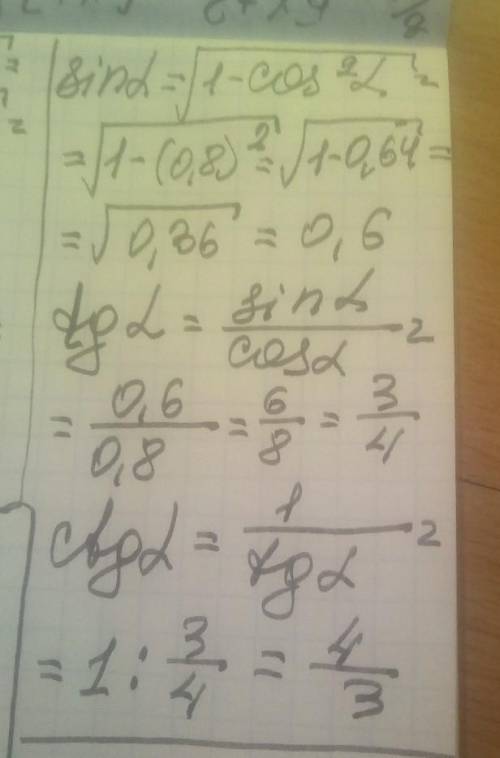 sinα = √(1-cos²α) =
= √(1-(0,8)²) = √(1-0,64) =
= √(0,36) = 0,6
tgα = sinα/cosα =
= 0,6/0,8 = 6/8 = 3/4
ctgα = 1/tgα =
= 1 : 3/4 = 4/3